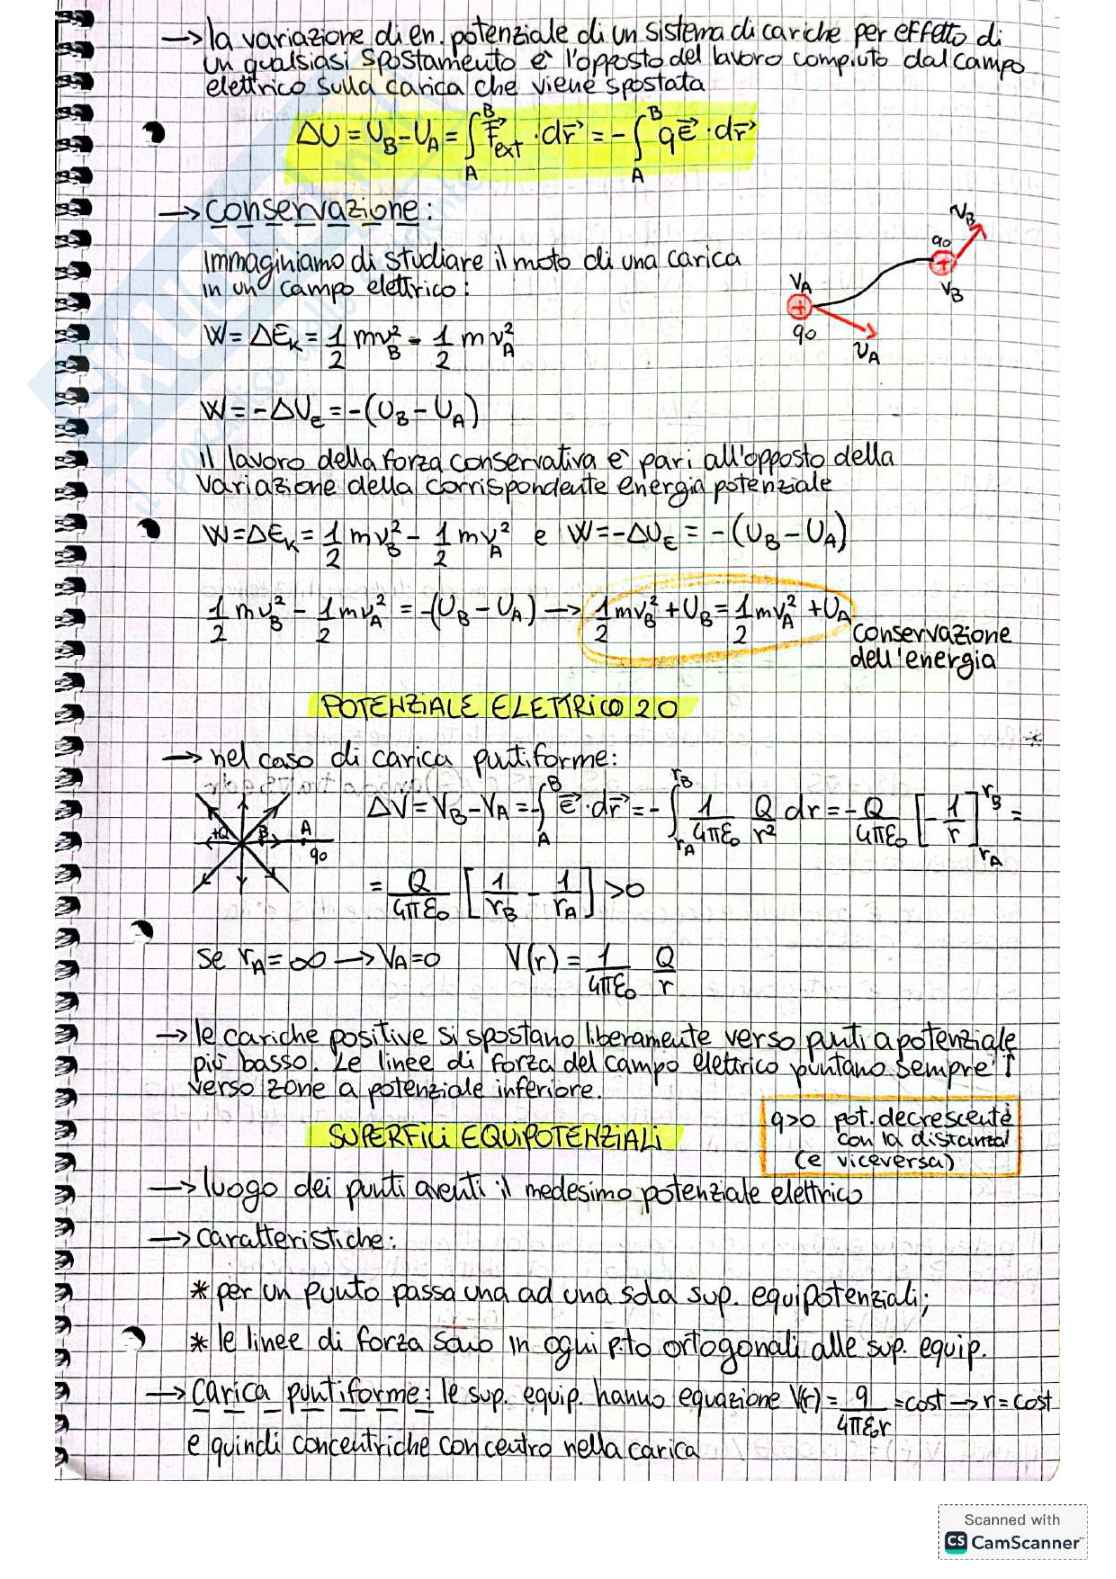 → la variazione di en. potenziale di un sistema di cariche per effetto di
un qualsiasi spostamento è l'opposto del lavoro compiuto dal campo
elettrico sulla carica che viene spostata
ΔU = U_B - U_A = ∫_A^B F⃗_ext · dr⃗ = - ∫_A^B qE⃗ · dr⃗
→ conservazione:
Immaginiamo di studiare il moto di una carica
in un campo elettrico:
V_A q0 v_A q0 V_B v_B
W = ΔE_K = 1/2 mv_B² - 1/2 mv_A²
W = -ΔU_E = -(U_B - U_A)
il lavoro della forza conservativa è pari all'opposto della
variazione della corrispondente energia potenziale
W = ΔE_K = 1/2 mv_B² - 1/2 mv_A² e W = -ΔU_E = -(U_B - U_A)
1/2 mv_B² - 1/2 mv_A² = -(U_B - U_A) → 1/2 mv_B² + U_B = 1/2 mv_A² + U_A
conservazione
dell'energia
POTENZIALE ELETTRICO 2.0
→ nel caso di carica puntiforme:
+Q B A q0
ΔV = V_B - V_A = ∫_A^B E⃗ · dr⃗ = - ∫_{r_A}^{r_B} 1/4πε0 Q/r² dr = - Q/4πε0 [-1/r]_{r_A}^{r_B} =
= Q/4πε0 [1/r_B - 1/r_A] > 0
se r_A = ∞ → V_A = 0 V(r) = 1/4πε0 Q/r
→ le cariche positive si spostano liberamente verso punti a potenziale
più basso. Le linee di forza del campo elettrico puntano sempre ↑
verso zone a potenziale inferiore.
q>0 pot. decrescente
con la distanza
(e viceversa)
SUPERFICI EQUIPOTENZIALI
→ luogo dei punti aventi il medesimo potenziale elettrico
→ caratteristiche:
* per un punto passa una ad una sola sup. equipotenziali;
* le linee di forza sono in ogni p.to ortogonali alle sup. equip.
→ carica puntiforme: le sup. equip. hanno equazione V(r) = q/4πε0r = cost → r = cost
e quindi concentriche con centro nella carica
Scanned with
CS CamScanner